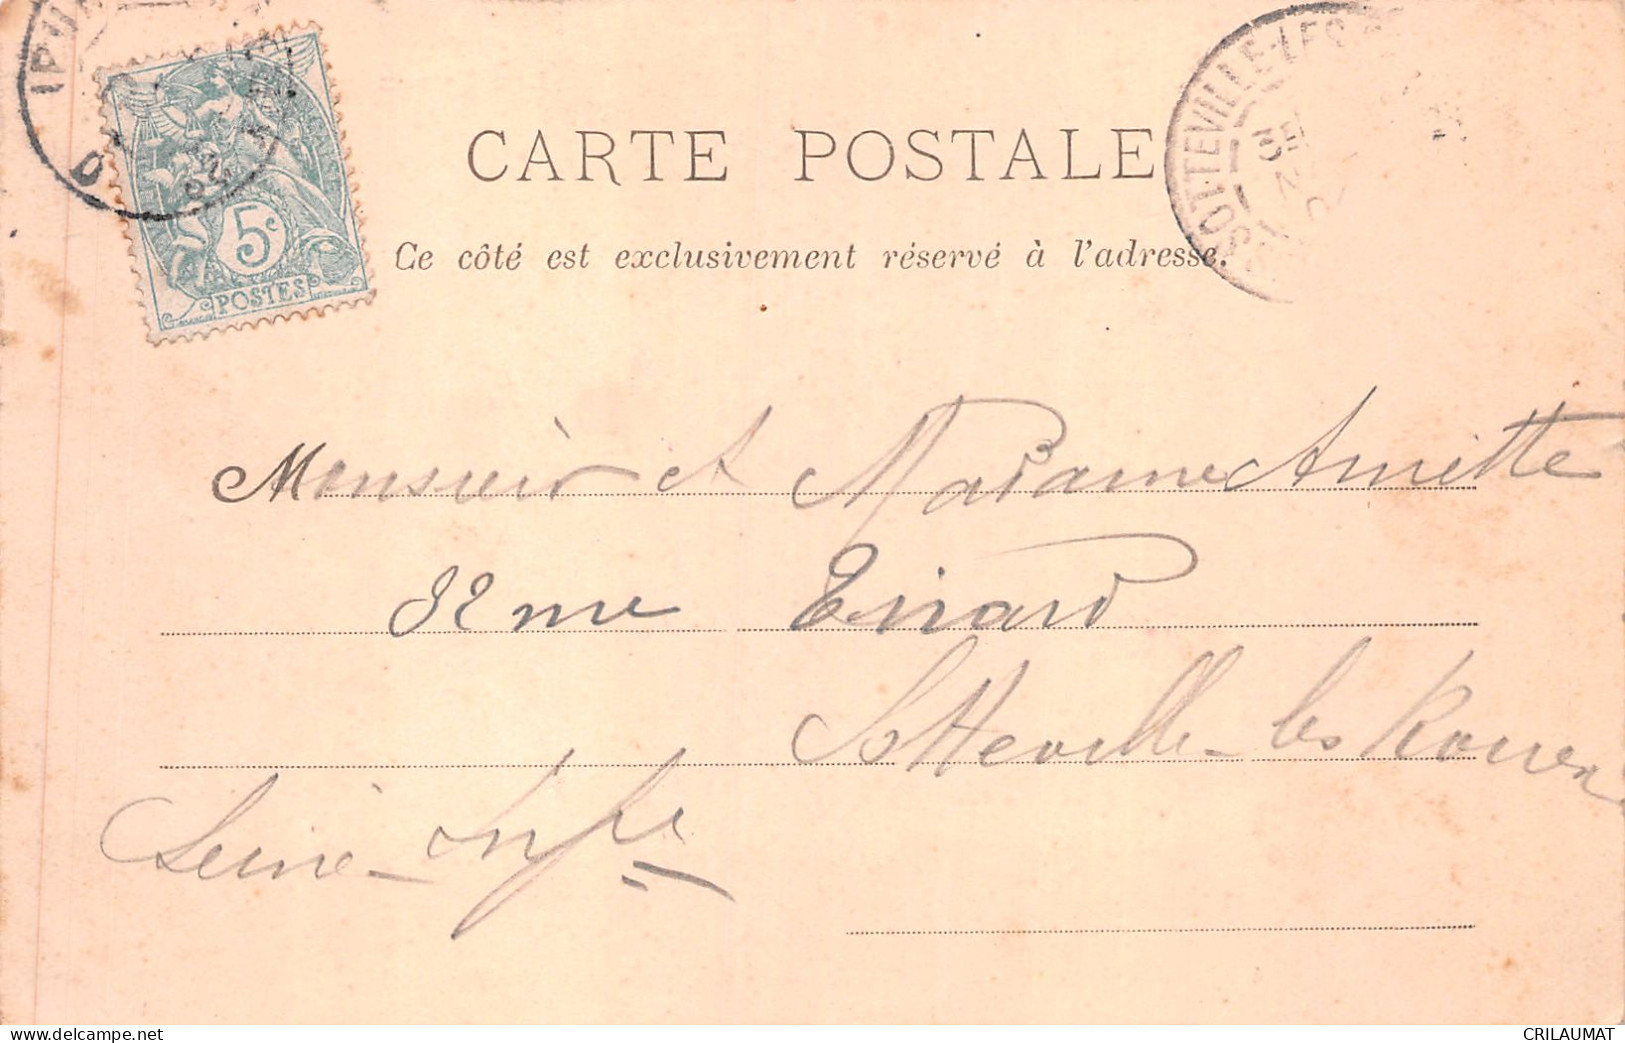 CARTE POSTALE
Ce côté est exclusivement réservé à l'adresse.
5c
POSTES
SOTTEVILLE-LES
Monsieur et Madame Amette
82 rue Evrard
Sotteville-les Rouen
Seine-Infre
delcampe.net
CRILAUMAT